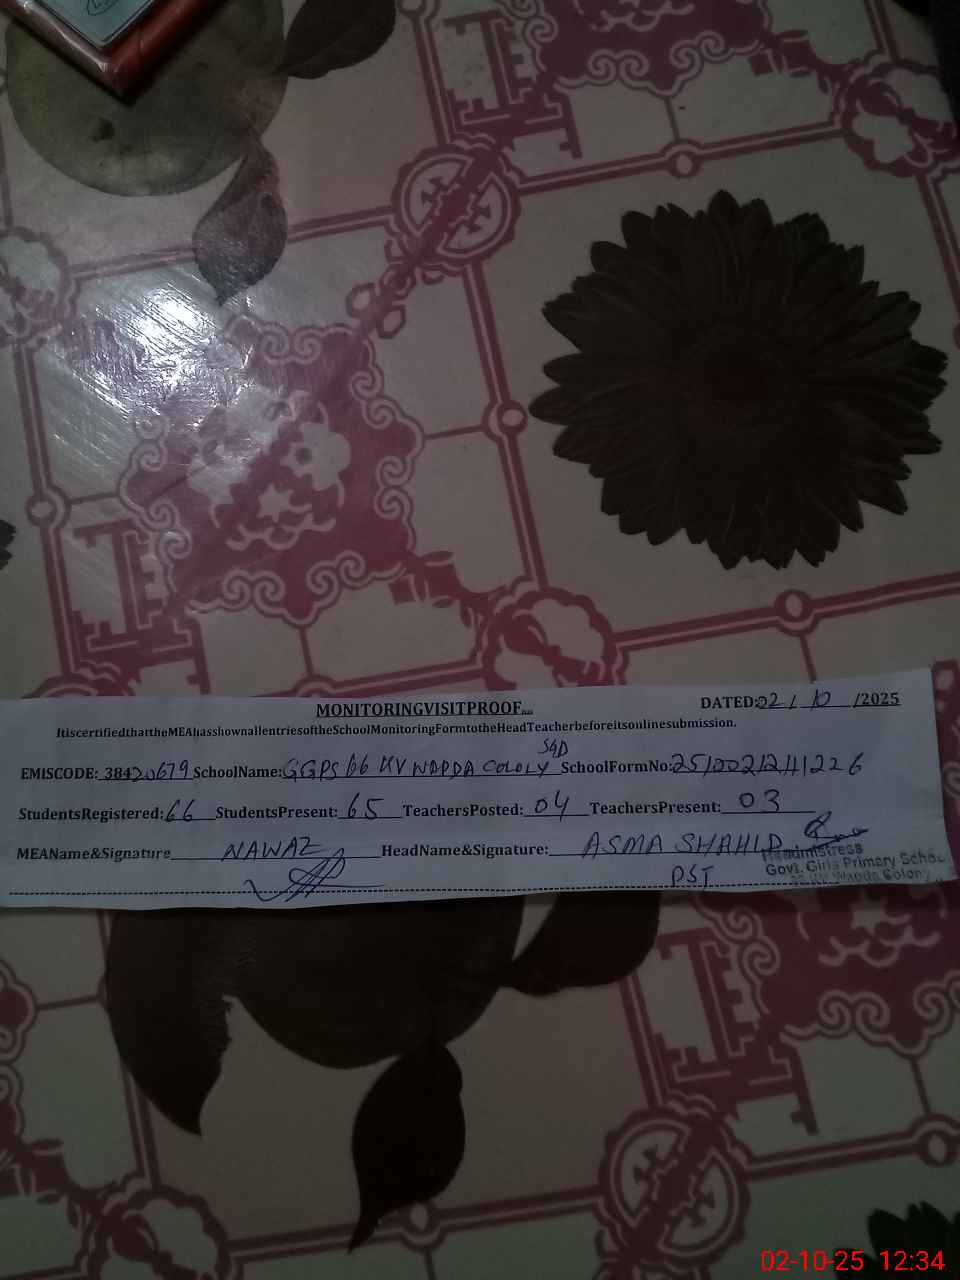 MONITORINGVISITPROOF
DATED:02/10/2025
ItiscertifiedthattheMEAhasshownallentriesoftheSchoolMonitoringFormtotheHeadTeacherbeforeitsonlinesubmission.
SGD
EMISCODE: 38420679 SchoolName: GGPS 66 KV WAPDA COLOLY SchoolFormNo:
StudentsRegistered: 66 StudentsPresent: 65 TeachersPosted: 04 TeachersPresent: 03
MEAName&Signature NAWAZ HeadName&Signature: ASMA SHAHID
PST
Headmistress
Govt. Girls Primary School
KV Wapda Colony
02-10-25 12:34